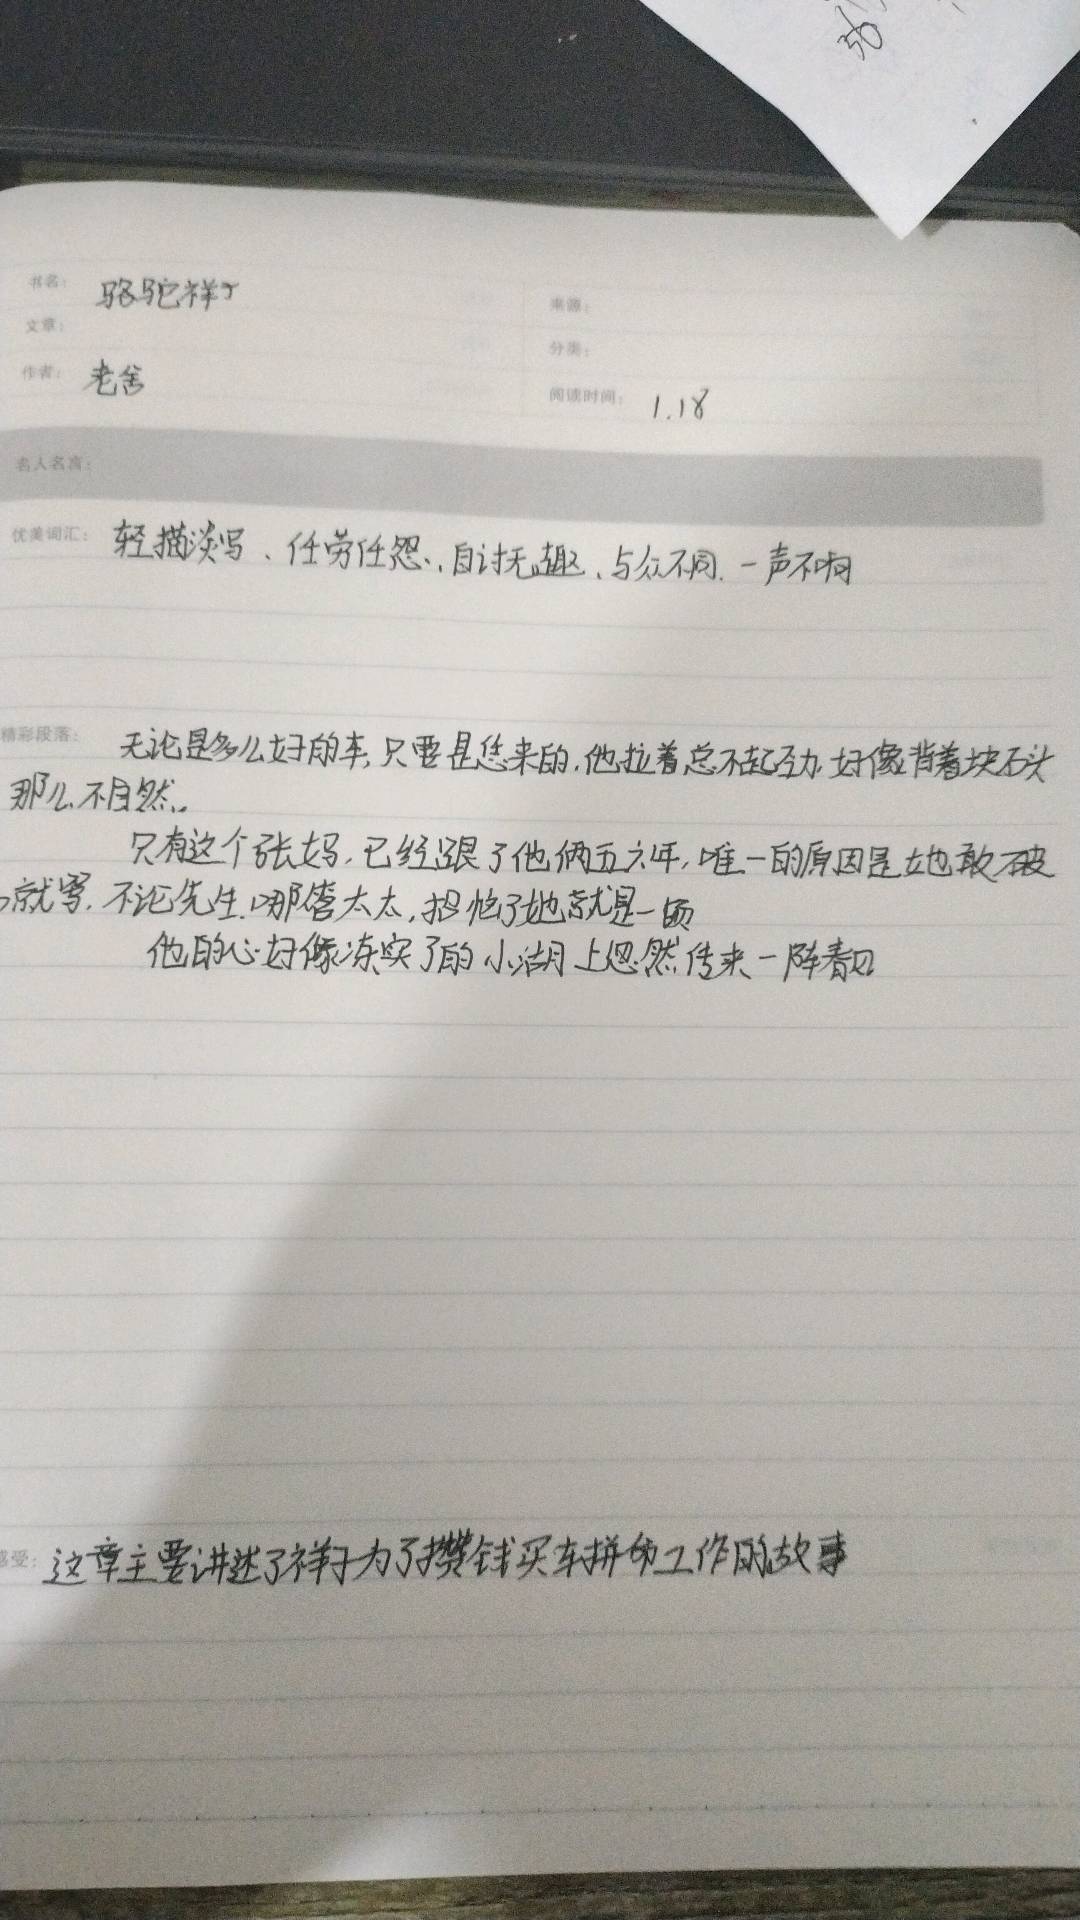 书名： 骆驼祥子
来源：
文章：
分类：
作者： 老舍
阅读时间： 1.18
名人名言：
优美词汇： 轻描淡写、任劳任怨、自讨无趣、与众不同、一声不响
精彩段落： 无论是多么好的车,只要是您来的,他拉着总不起劲,好像背着块石头
那么不自然。
只有这个张妈,已经跟了他俩五六年,唯一的原因是她敢破
就骂,不论先生,哪管太太,招恼了她就是一顿
他的心好像冻实了的小湖上忽然传来一阵春风
感受： 这章主要讲述了祥子为了攒钱买车拼命工作的故事